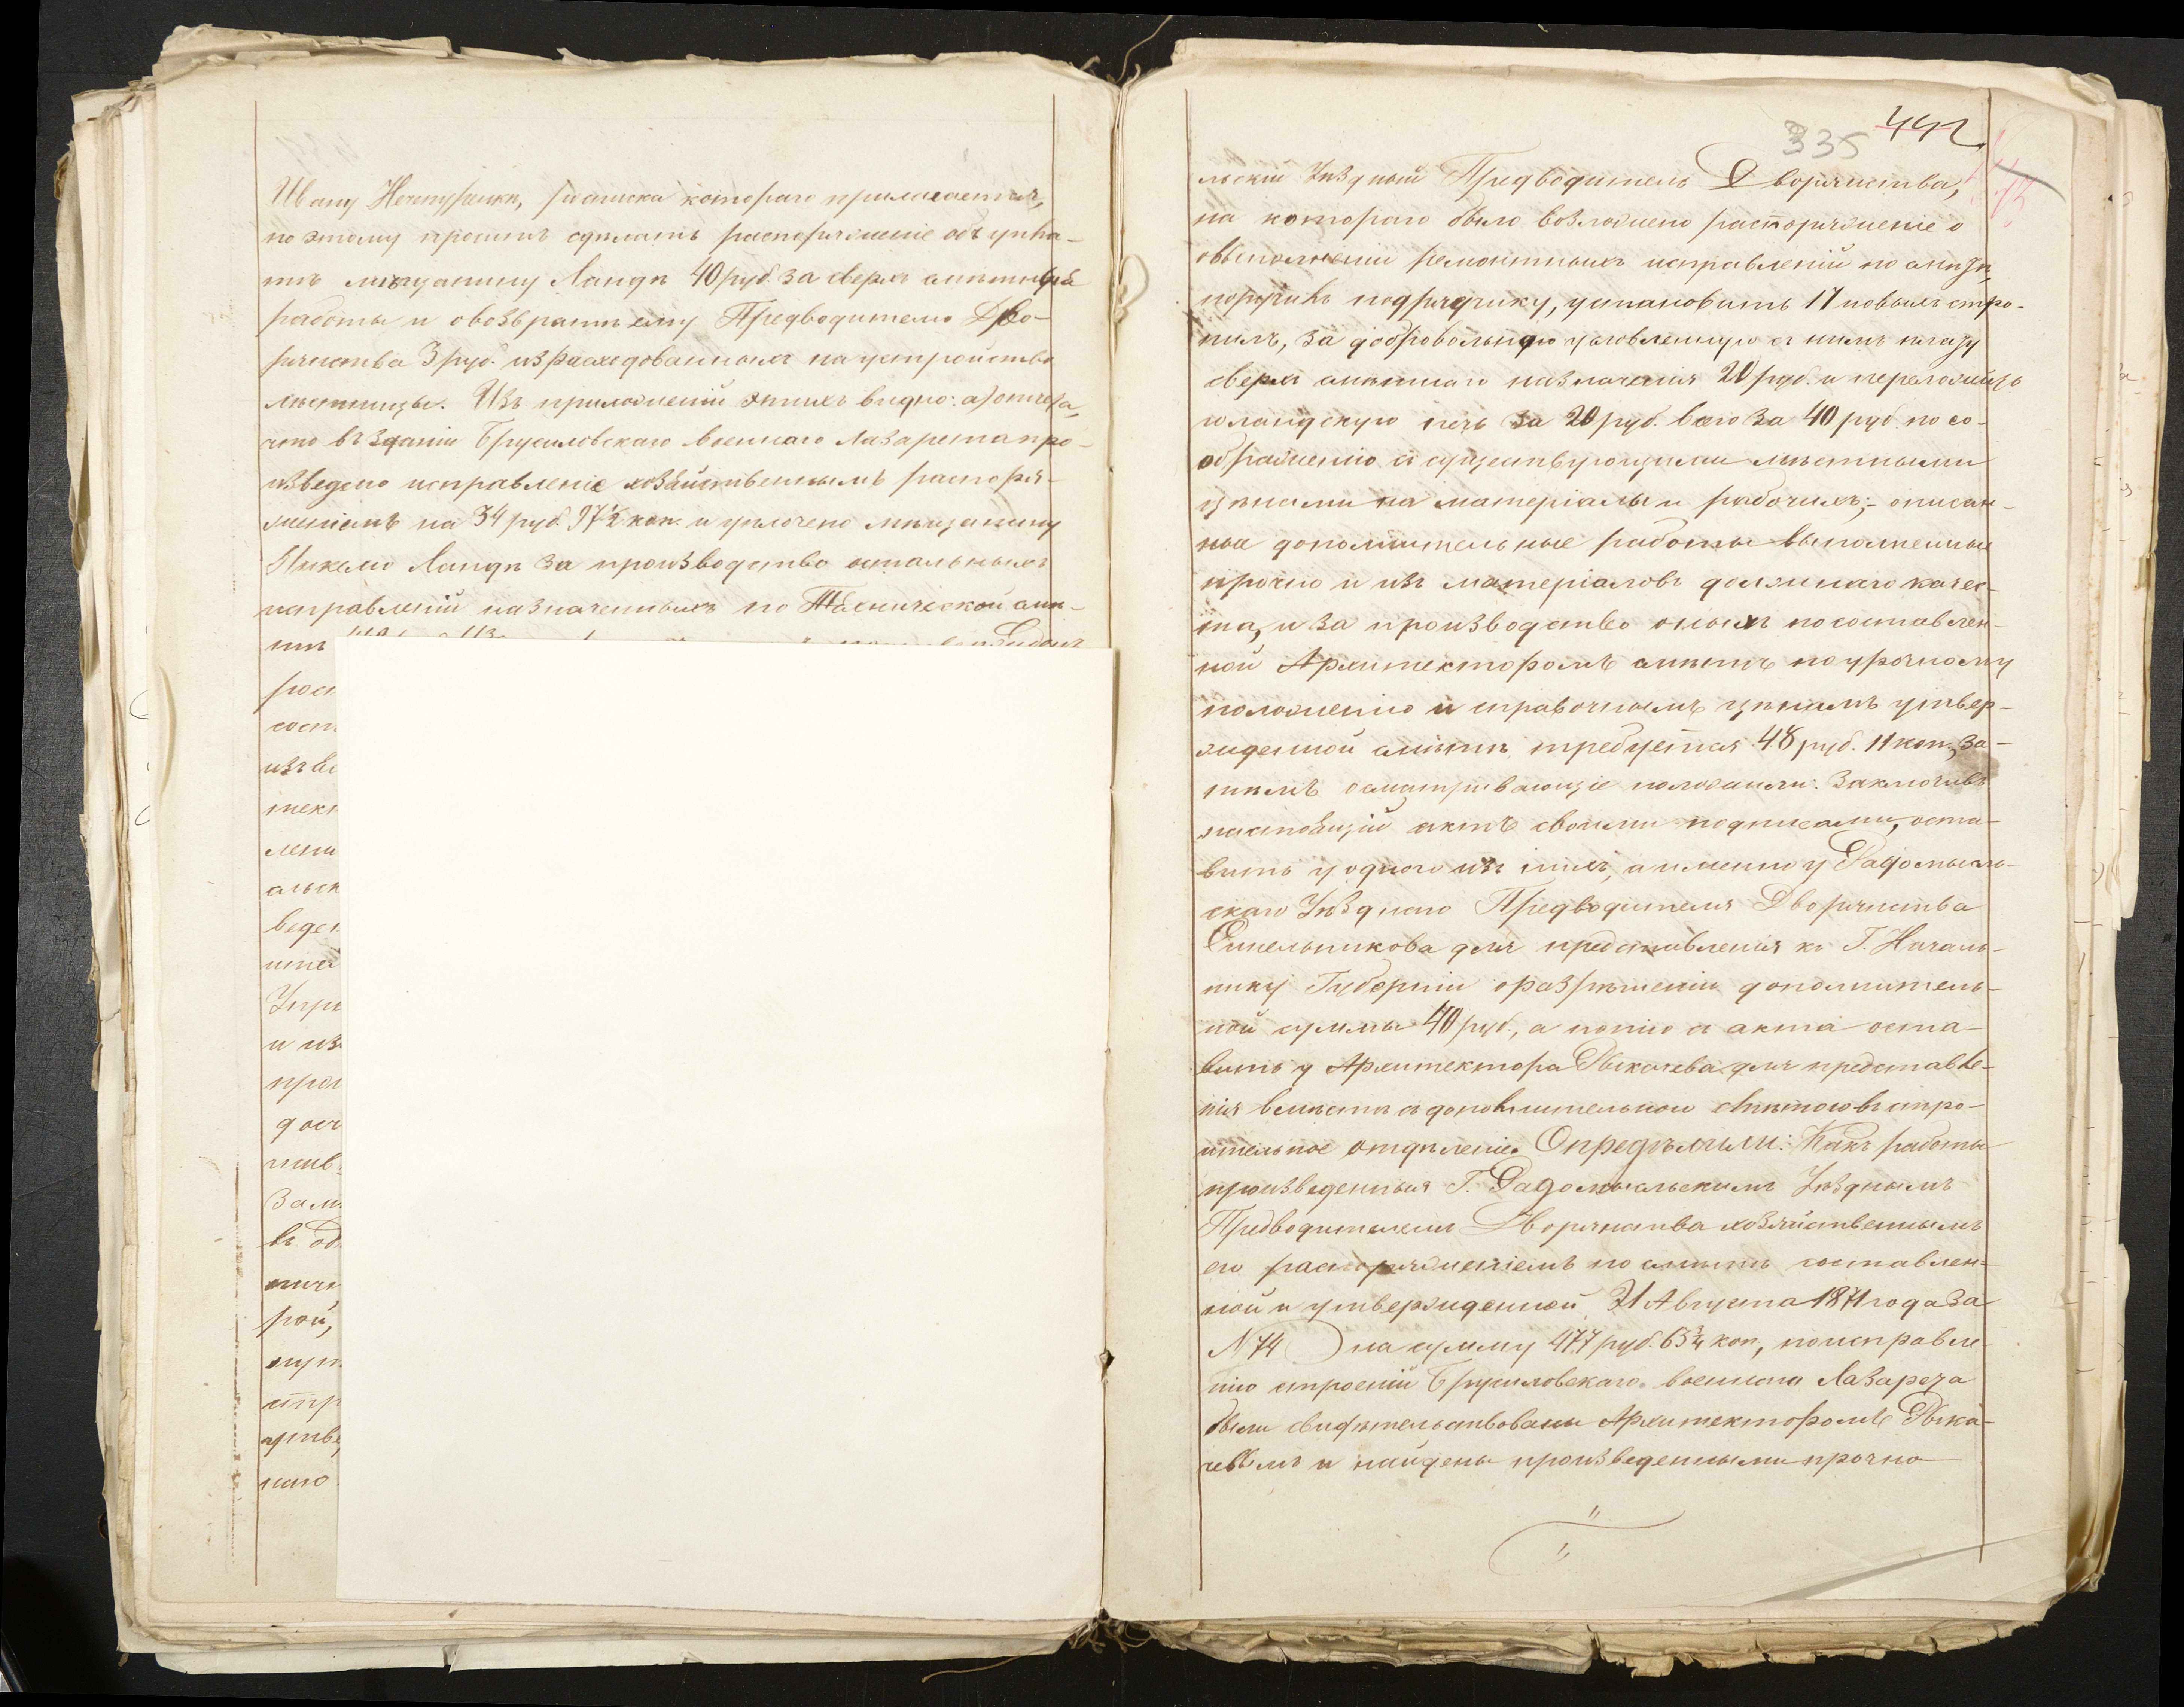 Ивану Нечипуренки, росписка котораго прилагается,
по этому просить сдѣлать распоряженіе объ упла-
тѣ мѣщанину Ландѣ 40 руб. за сверхъ смѣтныя
работы и о возвратѣ ему Предводителю Дво-
рянства 3 руб. израсходованныхъ на устройство
лѣстницы. Изъ приложеній этихъ видно: а) отчета,
что въ зданіи Брусиловскаго военнаго лазарета про-
изведено исправленіе хозяйственнымъ распоря-
женіемъ на 34 руб. 97½ коп. и уплочено мѣщанину
Ландѣ за производство остальныхъ
исправленій назначенныхъ по Технической смѣ-
тѣ
рост
сост
изъ во
тект
лени
альск
веден
ител
Упр
и из
про
дост
чив
Зам
въ од
рой,
стр
наго
335 442
льскій Уѣздный Предводитель Дворянства,
на котораго было возложено распоряженіе о
выполненіи ремонтныхъ исправленій по смѣтѣ,
поручилъ подрядчику, установить 17 новыхъ стро-
пилъ, за добровольную условленную съ нимъ плату
сверхъ смѣтнаго назначенія 20 руб. и переложить
голандскую печь за 20 руб. всего за 40 руб. по со-
ображенію съ существующими мѣстными
цѣнами на матеріалы и рабочихъ; - описан-
ные дополнительные работы выполненные
прочно и изъ матеріаловъ должнаго качес-
тва, и за производство оныхъ по составлен-
ной Архитекторомъ смѣтѣ по урочному
положенію и справочнымъ цѣнамъ утвер-
жденной смѣтѣ требуется 48 руб. 11 коп., за-
тѣмъ осматривающіе положили: Заключивъ
настоящій актъ своими подписами, оста-
вить у одного изъ нихъ, а именно у Радомысль-
скаго Уѣзднаго Предводителя Дворянства
Синельникова для представленія къ Г. Началь-
нику Губерніи о разрѣшеніи дополнитель-
ной суммы 40 руб., а копію съ акта оста-
вить у Архитектора Рыкачева для представле-
нія вмѣстѣ съ дополнительною смѣтою въ стро-
ительное отдѣленіе. Опредѣлили: Какъ работы
произведенныя Г. Радомысльскимъ Уѣзднымъ
Предводителемъ Дворянства хозяйственнымъ
его распоряженіемъ по смѣтѣ составлен-
ной и утвержденной 31 Августа 1871 года за
№ 74 на сумму 477 руб. 63¾ коп., по исправле-
нію строеній Брусиловскаго военнаго Лазарета
были свидѣтельствованы Архитекторомъ Рыка-
чевымъ и найдены произведенными прочно